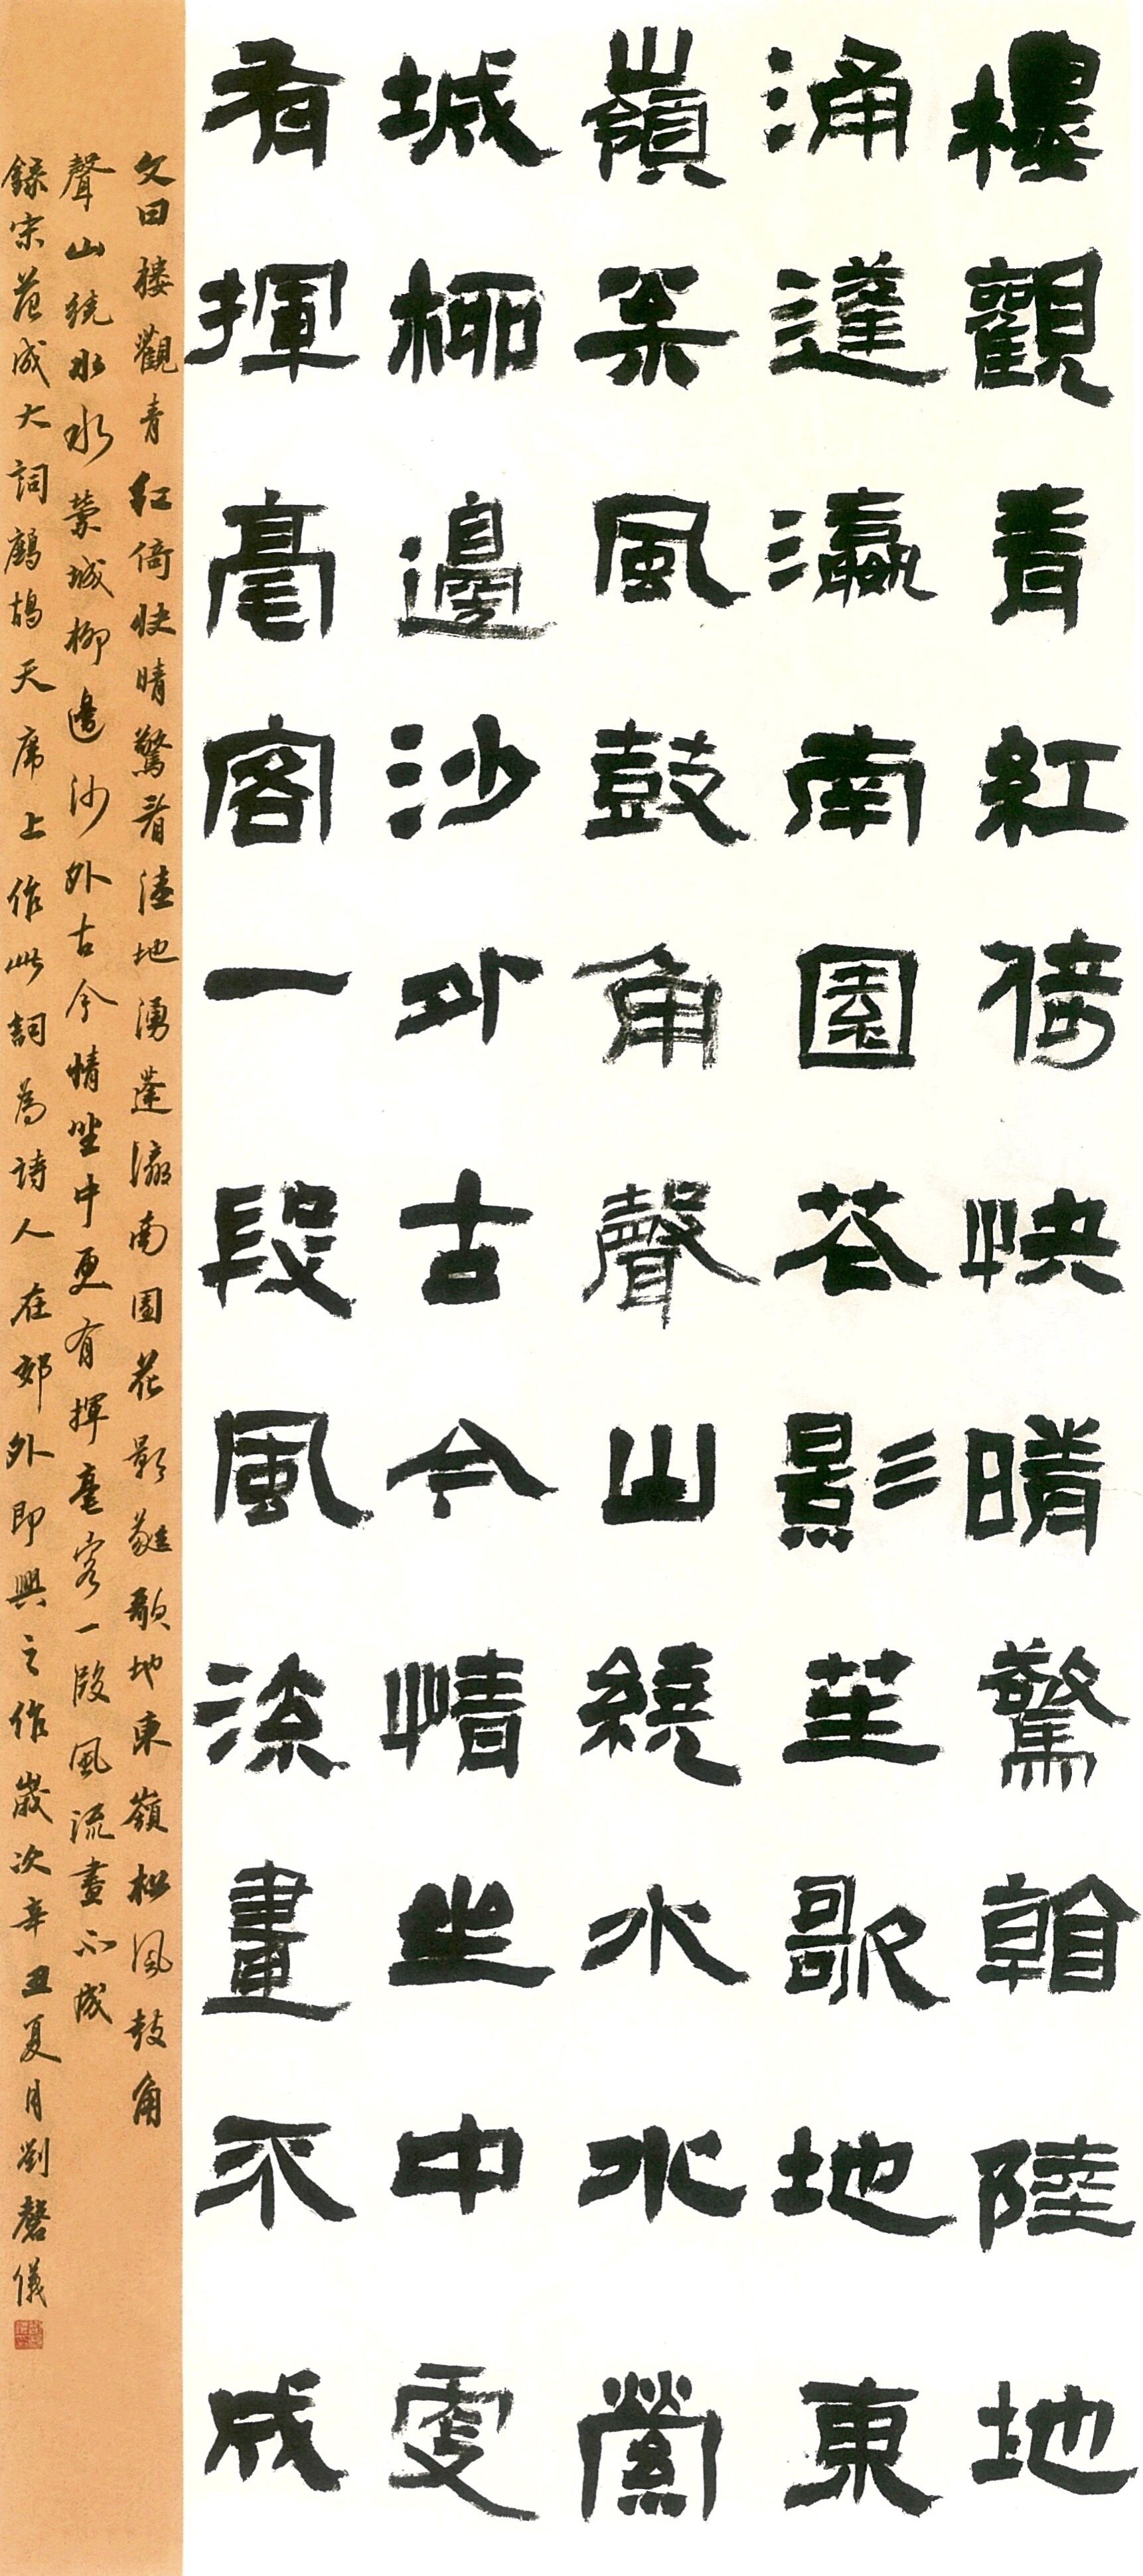 樓觀青紅倚快晴驚看陸地
涌蓬瀛南園花影笙歌地東
嶺松風鼓角聲山繞水水縈
城柳邊沙外古今情坐中更
有揮毫客一段風流畫不成
文曰樓觀青紅倚快晴驚看陸地湧蓬瀛南園花影笙歌地東嶺松風鼓角
聲山繞水水縈城柳邊沙外古今情坐中更有揮毫客一段風流畫不成
錄宋范成大詞鷓鴣天席上作此詞為詩人在郊外即興之作歲次辛丑夏月劉磬儀